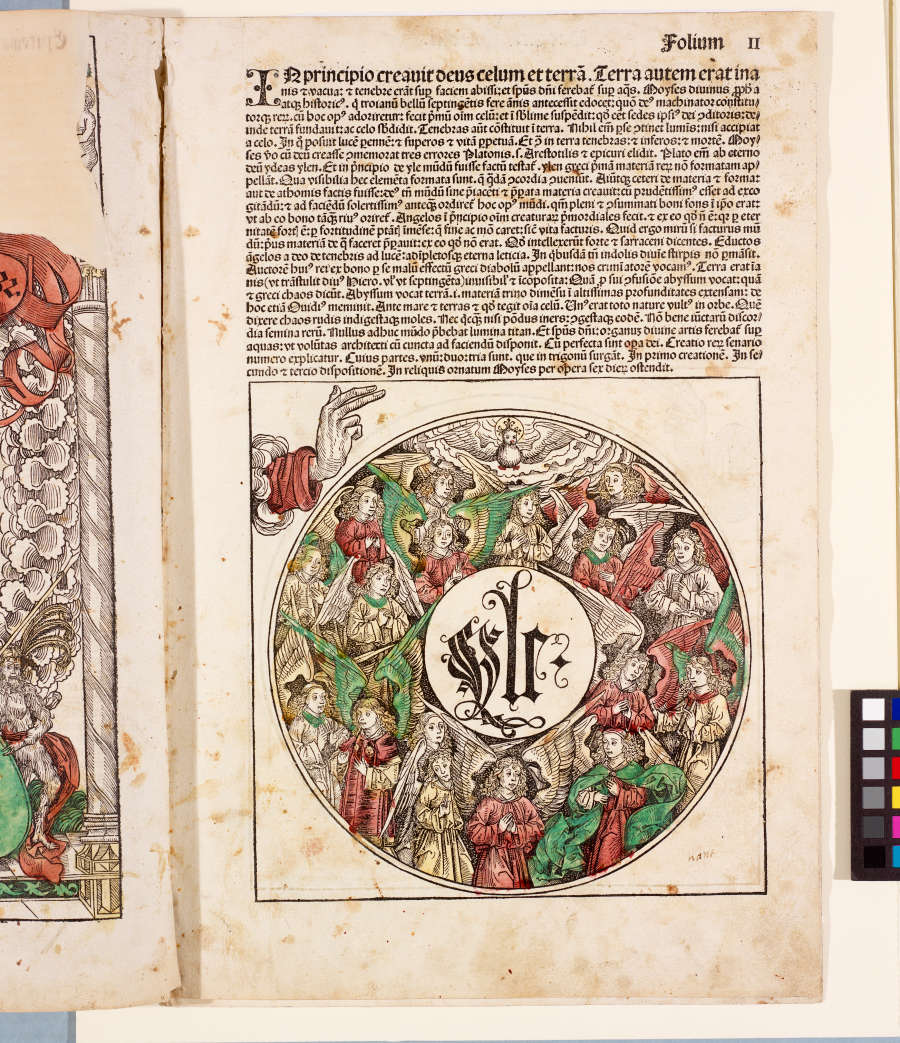 Folium II
IN principio creavit deus celum et terrã. Terra autem erat ina
nis & vacua: & tenebre erãt sup faciem abissi: et spũs dñi ferebaꝉ sup aq̃s. Moyses divinus ꝓph̃a
atq̃ historicꝰ. q̃ troianũ bellũ septingẽtis fere ãnis antecessit edocet: quõ deꝰ machinator constitu-
torq̃ reꝝ. cũ hoc opꝰ adoriretur: fecit pᵐũ oĩm celũ: et ĩ sblime suspẽdit: qð eẽt sedes ipsiꝰ dei ꝯditoris: de-
inde terrã fundauit: ac celo sb̃didit. Tenebras aũt cõstituit ĩ terra. Nihil em̃ ꝑse ꝯtinet luminis: nisi accipiat
a celo. In q̃ posuit lucẽ pennẽ: & superos & vitã ꝑpetuã. Et ꝓ in terra tenebras: & inferos: & mortẽ. Moy-
ses ṽo cũ deũ creasse ꝯmemorat tres errores Platonis .s. Arestotilis & epicuri elidit. Plato em̃ ab eterno
deũ ydeas ylen. Et in p̃ncipio de yle mũdũ fuisse factũ testaꝉ. ylen greci pʳmã materiã reꝝ nõ formatam ap-
pellãt. Qua visibilia hec elemẽta formata sunt. q̃ q̃dã ꝯcordia ꝯueniũt. Aũtq̃ ceteri de materia & formar̃
aut de athomis factis fuisse: deꝰ tñ mũdũ sine p̃iacẽti & p̃pata materia creauit: cũ prudẽtissimꝰ esset ad exco
gitãdũ: & ad faciẽdũ solertissimꝰ anteq̃ ordireꝉ hoc opꝰ mũdi. qm̃ pleni & ꝯsummati boni fons ĩ ipõ erat:
vt ab eo bono tãq̃ riuꝰ orireꝉ. Angelos ĩ p̃ncipio oĩm creaturaꝝ pʳmordiales fecit. & ex eo qð ñ ẽ: qꝛ ꝑ eter
nitatẽ fortꝰ ẽ: ꝑ fortitudinẽ ptãtꝰ ĩmẽse: q̃ fine ac mõ caret: sic̃ vita facturis. Quid ergo mirũ si facturus mũ
dũ: pᵘus materiã de q̃ faceret p̃pauit: ex eo qð nõ erat. Qð intellexerũt forte & sarraceni dicentes. Eductos
ãgelos a deo de tenebris ad lucẽ: adĩpletosq̃ eterna leticia. In q̃busdã tñ indolis diuie stirpis nõ ꝑmãsit.
Auctorẽ huiꝰ rei ex bono ꝑ se malũ effectũ greci diabolũ appellant: nos crimĩatorẽ vocamꝰ. Terra erat ĩa
nis (vt trãstulit diuꝰ Hiero. vl̃ vt septingẽta) inuisibil̃ & icõposita: Quã ꝓ sui ꝯfusiõe abyssum vocat: quã
& greci chaos dicũt. Abyssum vocat terrã .i. materiã trino dimẽsu ĩ altissimas profunditates extensam: de
hoc etiã Ouidiꝰ meminit. Ante mare & terras & qð tegit oĩa celũ. Unꝰ erat toto nature vultꝰ in orbe. Quẽ
dixere chaos rudis indigestaq̃ moles. Nec q̃cq̃ nisi põdus iners: ꝯgestaq̃ eodẽ. Nõ bene iũctarũ discor-
dia semina rerũ. Nullus adhuc mũdo p̃bebat lumina titan. Et spũs dñi: organũ diuine artis ferebaꝉ sup
aquas: vt volũtas architecti cũ cuncta ad faciendũ disponit. Cũ perfecta sunt opa dei. Creatio reꝝ senario
numero explicatur. Cuius partes. vnũ: duo: tria sunt. que in trigonũ surgãt. In primo creationẽ. In se-
cundo & tercio dispositionẽ. In reliquis ornatum Moyses per oꝑa sex dieꝝ ostendit.
Yle